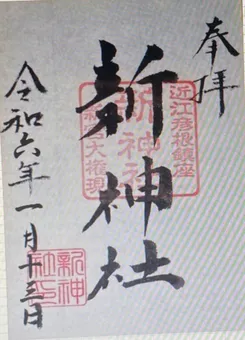 奉拝
近江彦根鎮座
新神社
新神社
大権現
令和六年一月十三日
新神
社印